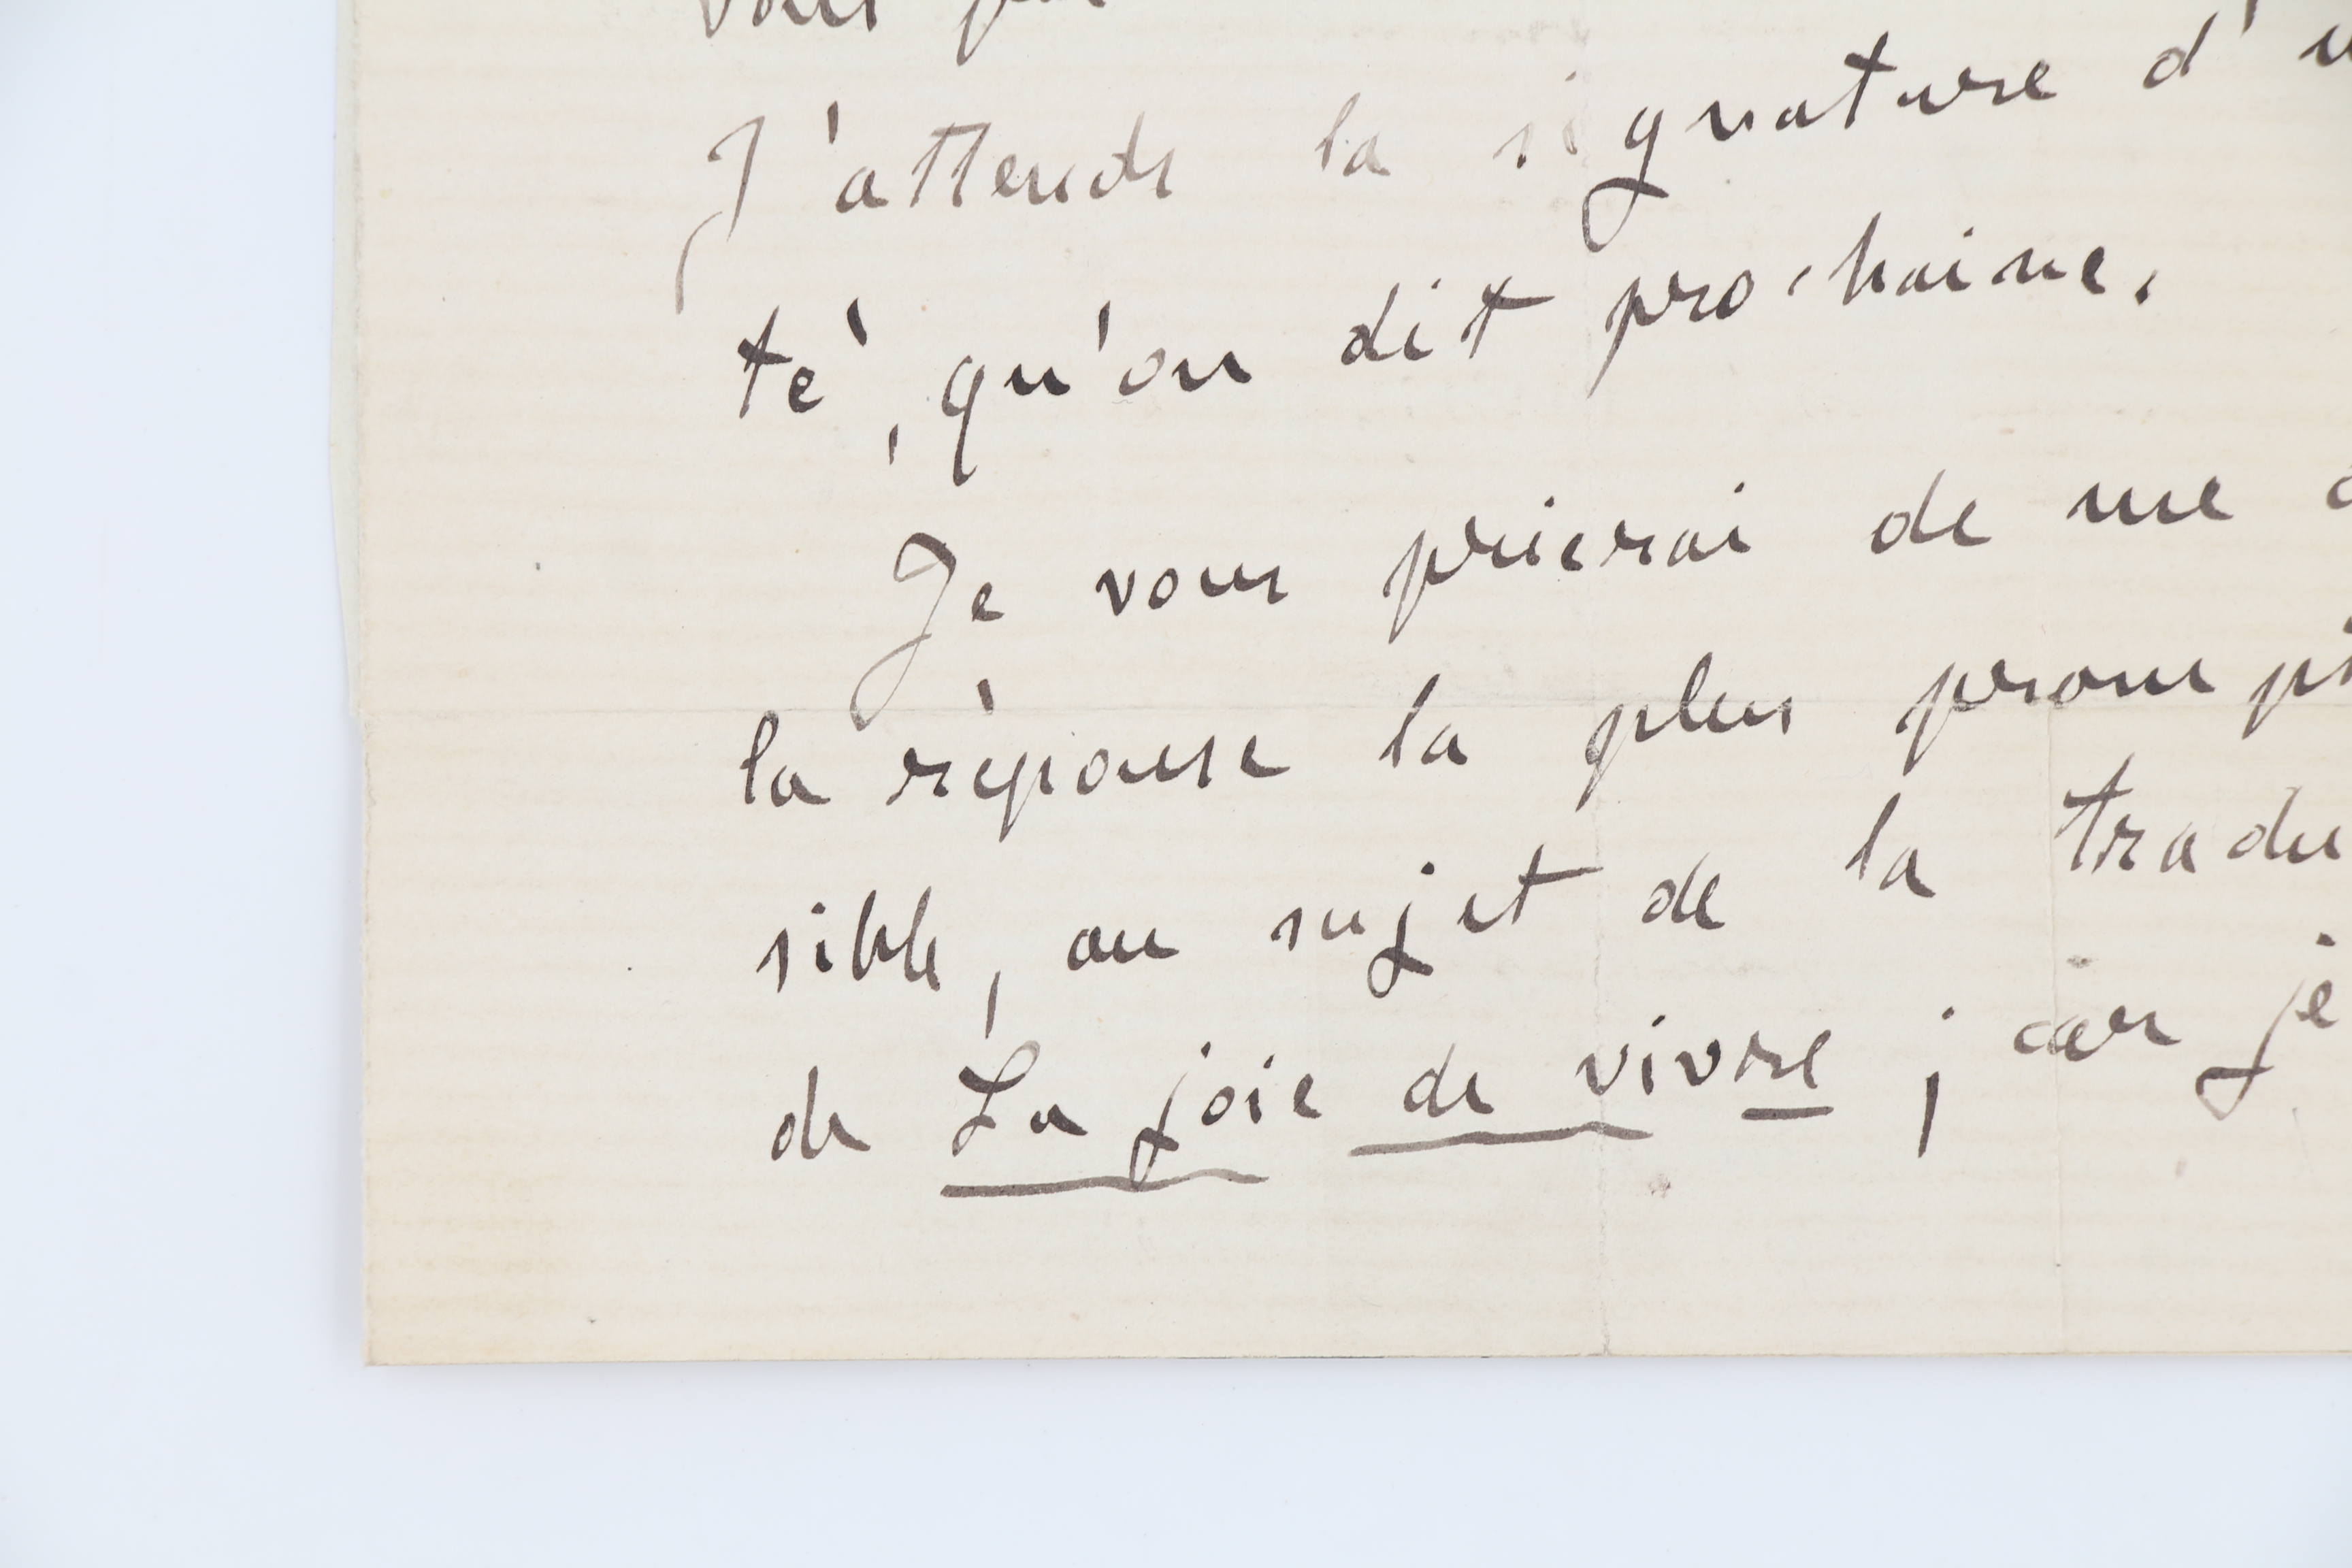 vous
J'attends la signature d'u
té, qu'on dit prochaine.
Je vous prierai de me
la réponse la plus prompt
sible, au sujet de la tradu
de La joie de vivre ; car je